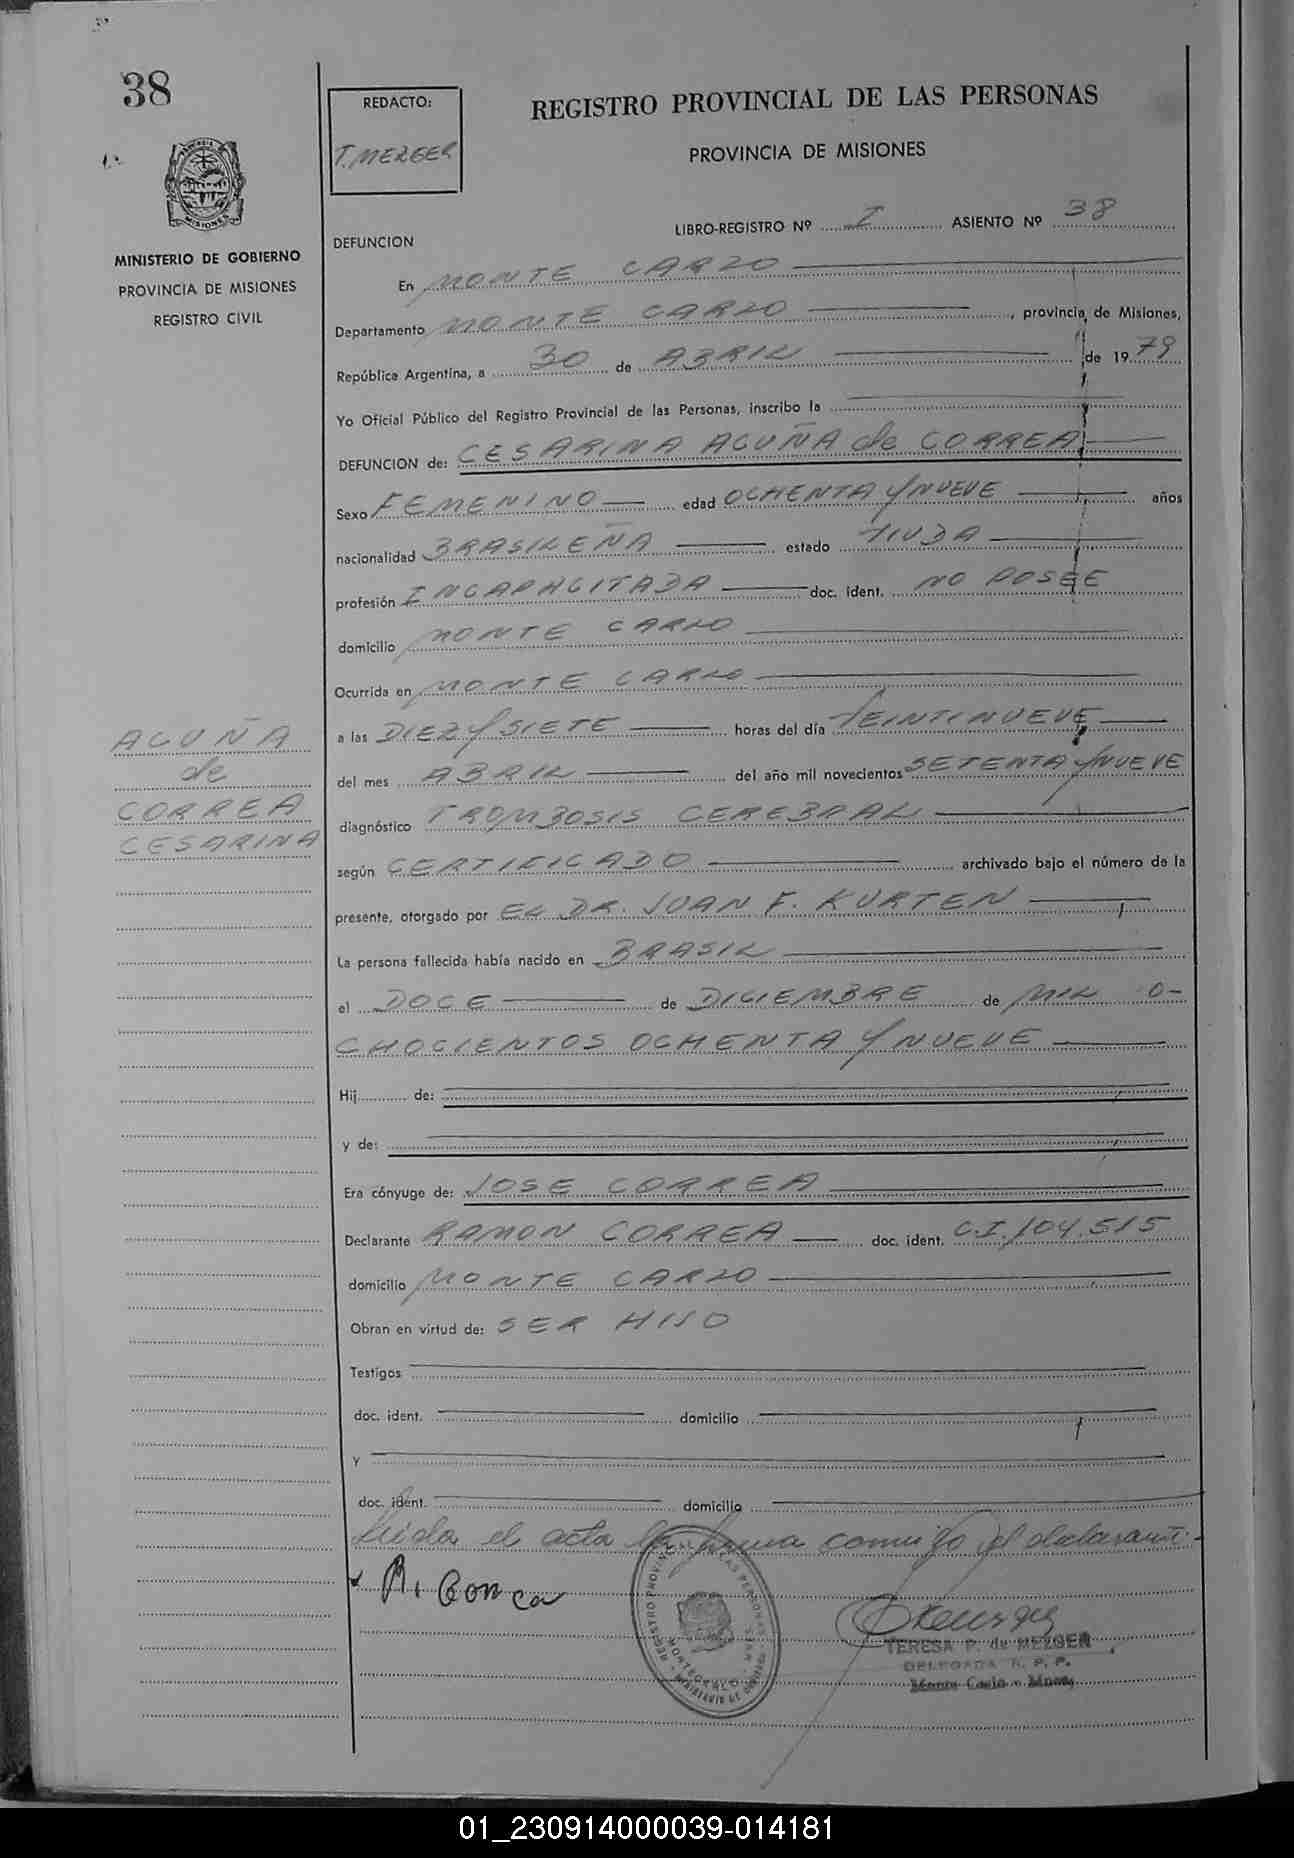 38
REDACTO:
T. MEZGER
REGISTRO PROVINCIAL DE LAS PERSONAS
PROVINCIA DE MISIONES
MISIONES
MINISTERIO DE GOBIERNO
PROVINCIA DE MISIONES
REGISTRO CIVIL
DEFUNCION
LIBRO-REGISTRO Nº I ASIENTO Nº 38
En MONTE CARLO
Departamento MONTE CARLO, provincia de Misiones,
República Argentina, a 30 de ABRIL de 1979
Yo Oficial Público del Registro Provincial de las Personas, inscribo la
DEFUNCION de: CESARINA ACUÑA de CORREA
Sexo FEMENINO edad OCHENTA Y NUEVE años
nacionalidad BRASILEÑA estado VIUDA
profesión INCAPACITADA doc. ident. NO POSEE
domicilio MONTE CARLO
Ocurrida en MONTE CARLO
a las DIEZ Y SIETE horas del día VEINTINUEVE
del mes ABRIL del año mil novecientos SETENTA Y NUEVE
diagnóstico TROMBOSIS CEREBRAL
según CERTIFICADO archivado bajo el número de la
presente, otorgado por EL DR. JUAN F. KURTEN
La persona fallecida había nacido en BRASIL
el DOCE de DICIEMBRE de MIL O-
CHOCIENTOS OCHENTA Y NUEVE
Hij de:
y de:
Era cónyuge de: JOSE CORREA
Declarante RAMON CORREA doc. ident. C.I. 104.515
domicilio MONTE CARLO
Obran en virtud de: SER HIJO
Testigos
doc. ident. domicilio
y
doc. ident. domicilio
Leida el acta la firma comigo el declarante.-
R. Correa
TERESA P. de MEZGER
DELEGADA R. P. P.
Monte Carlo - Mnes.
ACUÑA
de
CORREA
CESARINA
01_230914000039-014181